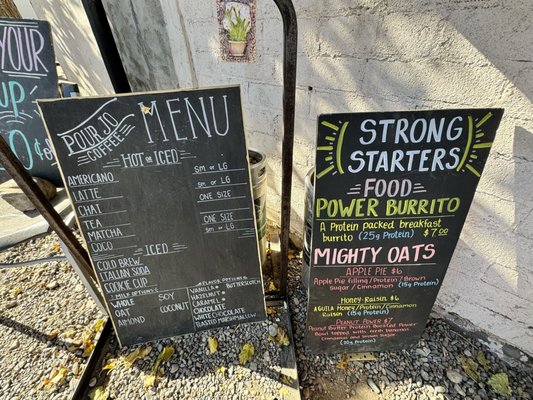 YOUR
UP
POUR JO
COFFEE
MENU
HOT OR ICED
AMERICANO SM OR LG
LATTE SM OR LG
CHAI ONE SIZE
TEA
MATCHA ONE SIZE
COCO SM OR LG
ICED
COLD BREW
ITALIAN SODA
COOKIE CUP
MILK OPTIONS
WHOLE SOY
OAT COCONUT
ALMOND
FLAVOR OPTIONS
VANILLA BUTTERSCOTCH
HAZELNUT
CARAMEL
CHOCOLATE
WHITE CHOCOLATE
TOASTED MARSHMALLOW
STRONG
STARTERS
FOOD
POWER BURRITO
A Protein packed breakfast
burrito (25g Protein) $7.00
MIGHTY OATS
APPLE PIE $6
Apple Pie filling/Protein/Brown
Sugar/Cinnamon (15g Protein)
Honey-Raisin $6
Honey/Cinnamon
Raisin (15g Protein)
PEANUT POWER $7
Peanut Butter Protein Roasted Power
Bowl topped w/ fresh bananas,
and brown sugar